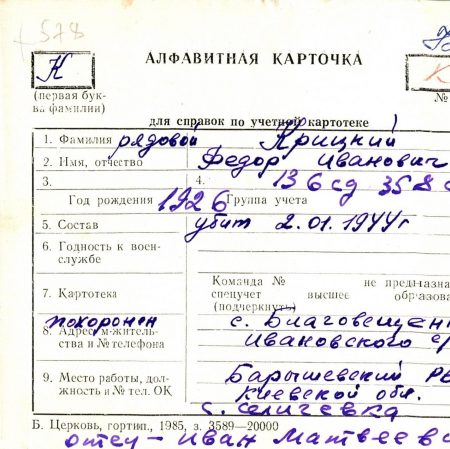 578
АЛФАВИТНАЯ КАРТОЧКА
К
К
(первая бук-
ва фамилии)
№
для справок по учетной картотеке
1. Фамилия рядовой Крицкий
2. Имя, отчество Федор Иванович
3. 4. 136 сд 358 с
Год рождения 1926 Группа учета
5. Состав убит 2.01.1944г
6. Годность к воен-
службе
7. Картотека
Команда № не предназна
спецучет высшее образова
(подчеркнуть)
похоронен с. Благовещен
8. Адрес м-житель-
ства и № телефона Ивановского с/
9. Место работы, дол-
жность и № тел. ОК
Барышевский
Киевской обл.
с. Селичевка
Б. Церковь, гортип., 1985, з. 3589—20000
отец - Иван Матвееви